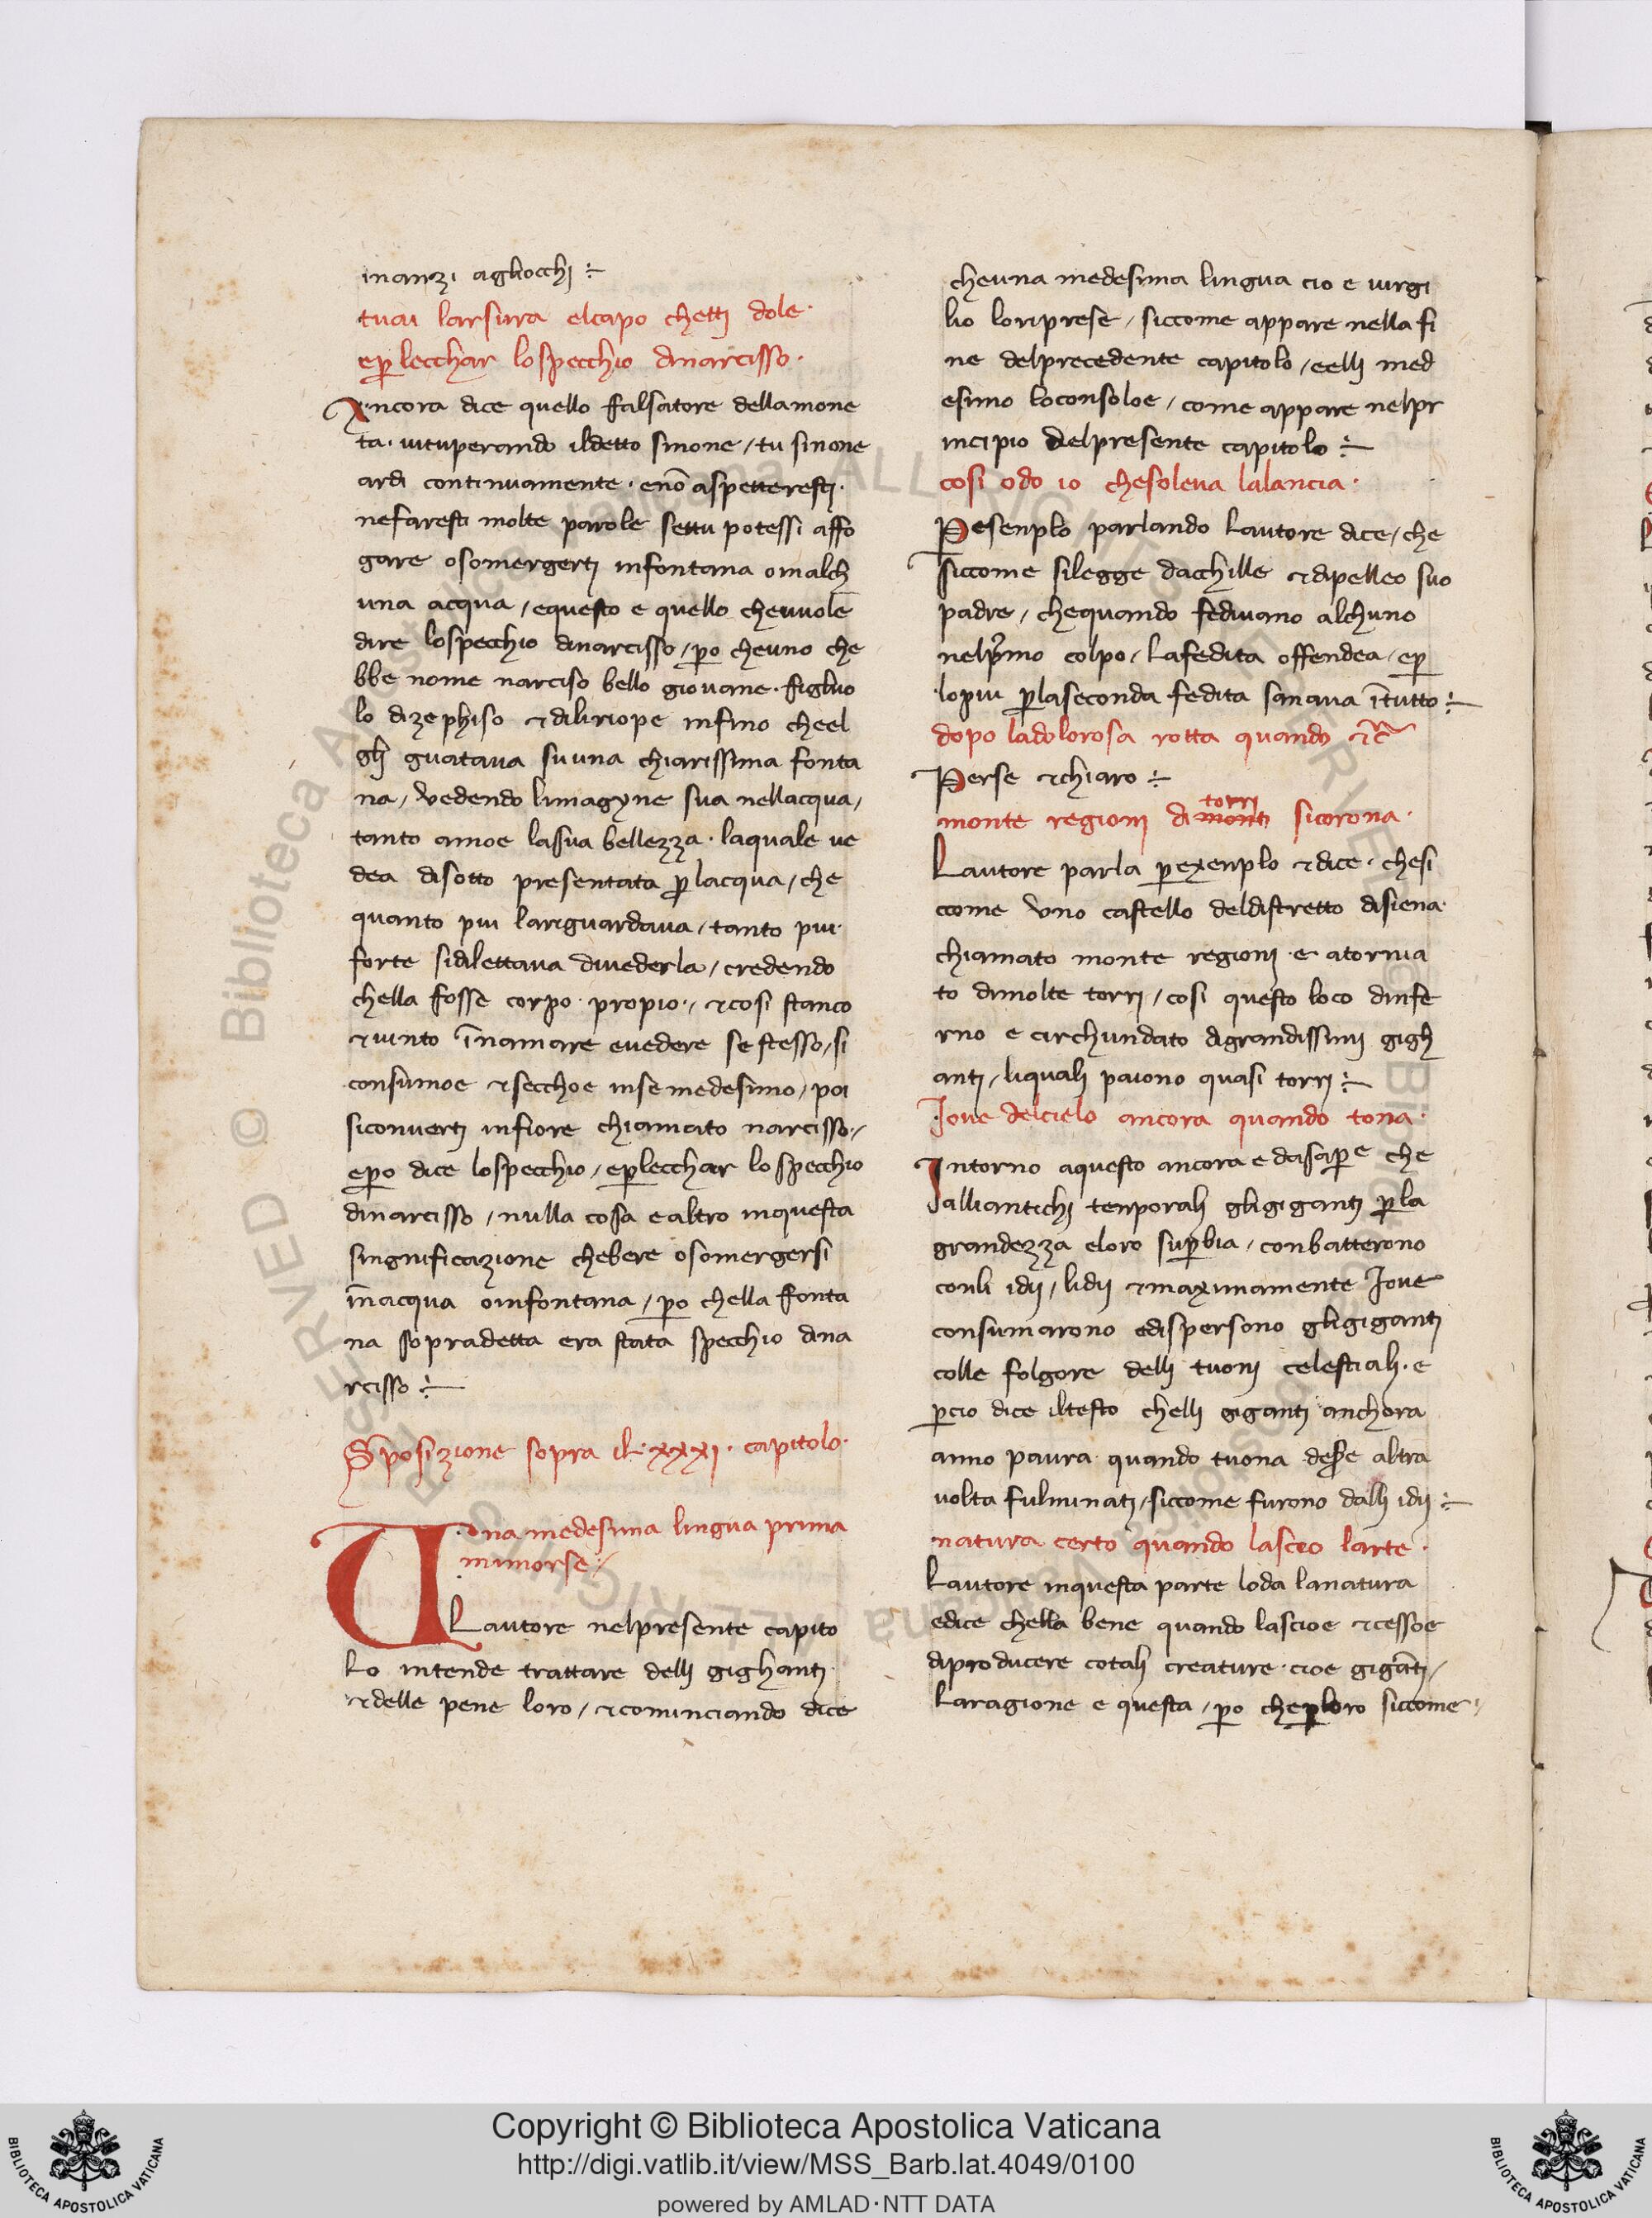 inanzi agliocchi ÷
tuai larsura elcapo chetti dole·
eꝑ lecchar lospecchio dinarcisso·
Ancora dice quello falsatore dellamone
ta· uituperando ildetto sinone / tu sinone
ardi continuamente· enō aspetteresti·
nefaresti molte parole settu potessi affo
gare osomergerti infontana oinalch
una acqua / equesto e quello cheuuole
dire lospecchio dinarcisso / ꝑo cheuno che
bbe nome narciso bello giouane· figluo
lo dizephiso ⁊diliriope infino cheel
gli guataua suuna chiarissima fonta
na / vedendo limagyne sua nellacqua /
tanto amoe lasua bellezza· laquale ue
dea disotto presentata ꝑ lacqua / che
quanto piu lariguardaua / tanto piu·
forte sidilettaua diuederla / credendo
chella fosse corpo· propio· / ⁊cosi stanco
⁊uinto īnamare euedere se stesso / si
consumoe ⁊secchoe inse medesimo / poi
siconuerti infiore chiamato narcisso· /
eꝑo dice lospecchio / eꝑlecchar lo specchio
dinarcisso / nulla cosa ealtro inquesta
singnificazione chebere osomergersi
īnacqua oinfontana / ꝑo chella fonta
na sopradetta era stata specchio dina
rcisso ÷
Sposizione sopra il· xxxi· capitolo·
Una medesima lingua prima
mimorse /
Lautore nelpresente capito
lo intende trattare delli gighanti·
⁊delle pene loro / ⁊cominciando dice
cheuna medesima lingua cio e uirgi
lio loriprese / siccome appare nella fi
ne delprecedente capitolo / eelli med
esimo loconsoloe / come appare nelpr
incipio delpresente capitolo ÷
cosi odo io chesoleua lalancia·
Pesenplo parlando lautore dice / che
siccome silegge dacchille ⁊dipelleo suo
padre / chequando fediuano alchuno
nelpͥmo colpo / lafedita offendea / eꝑ
lopiu ꝑlaseconda fedita sanaua ītutto ÷
dopo ladolorosa rotta quando ⁊c̃
Perse ⁊chiaro ÷
monte regioni di monti torri sicorona·
Lautore parla ꝑexenplo ⁊dice· chesi
ccome vno castello deldistretto disiena·
chiamato monte regioni· e atornia
to dimolte torri / cosi questo loco dinfe
rno e circhundato digrandissimi gigh
anti / liquali paiono quasi torri ÷
Ioue delcielo ancora quando tona·
Intorno aquesto ancora e dasaꝑe che
alliantichi tenporali gligiganti ꝑla
grandezza eloro suꝑbia / conbatterono
conli idii / lidii ⁊maximamente Ioue
consumarono edispersono gligiganti
colle folgore delli tuoni celestiali· e
ꝑcio dice iltesto chelli giganti anchora
anno paura quando tuona deẽ altra
uolta fulminati / siccome furono dalli idii ÷
natura certo quando lascio larte·
Lautore inquesta parte loda lanatura
edice chella bene quando lascioe ⁊cessoe
diproducere cotali creature· cioe gigāti /
Laragione e questa / ꝑo cheꝑloro siccome /
Copyright © Biblioteca Apostolica Vaticana
http://digi.vatlib.it/view/MSS_Barb.lat.4049/0100
powered by AMLAD·NTT DATA
BIBLIOTECA APOSTOLICA VATICANA
BIBLIOTECA APOSTOLICA VATICANA